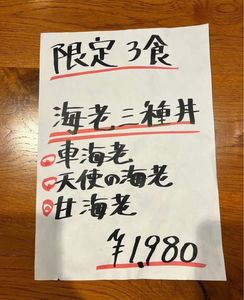 限定3食
海老三種丼
車海老
天使の海老
甘海老
¥1,980